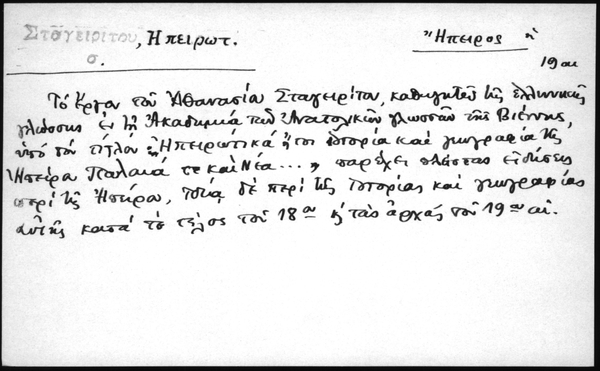 Σταγειρίτου, Ἠπειρωτ.
σ.
Ἤπειρος ἡ
19ου
Τὸ ἔργον τοῦ Ἀθανασίου Σταγειρίτου, καθηγητοῦ τῆς ἑλληνικῆς
γλώσσης ἐν τῇ Ἀκαδημίᾳ τῶν Ἀνατολικῶν γλωσσῶν τῆς Βιέννης,
ὑπὸ τὸν τίτλον "Ἠπειρωτικά ἤτοι ἱστορία καὶ γεωγραφία τῆς
Ἠπείρου Παλαιά τε καὶ Νέα...", παρέχει πλείστας εἰδήσεις
περὶ τῆς Ἠπείρου, δὲ περὶ τῆς ἱστορίας καὶ γεωγραφίας
αὐτῆς κατὰ τὸ τέλος τοῦ 18ου κ τὰς ἀρχάς τοῦ 19ου αἰ.